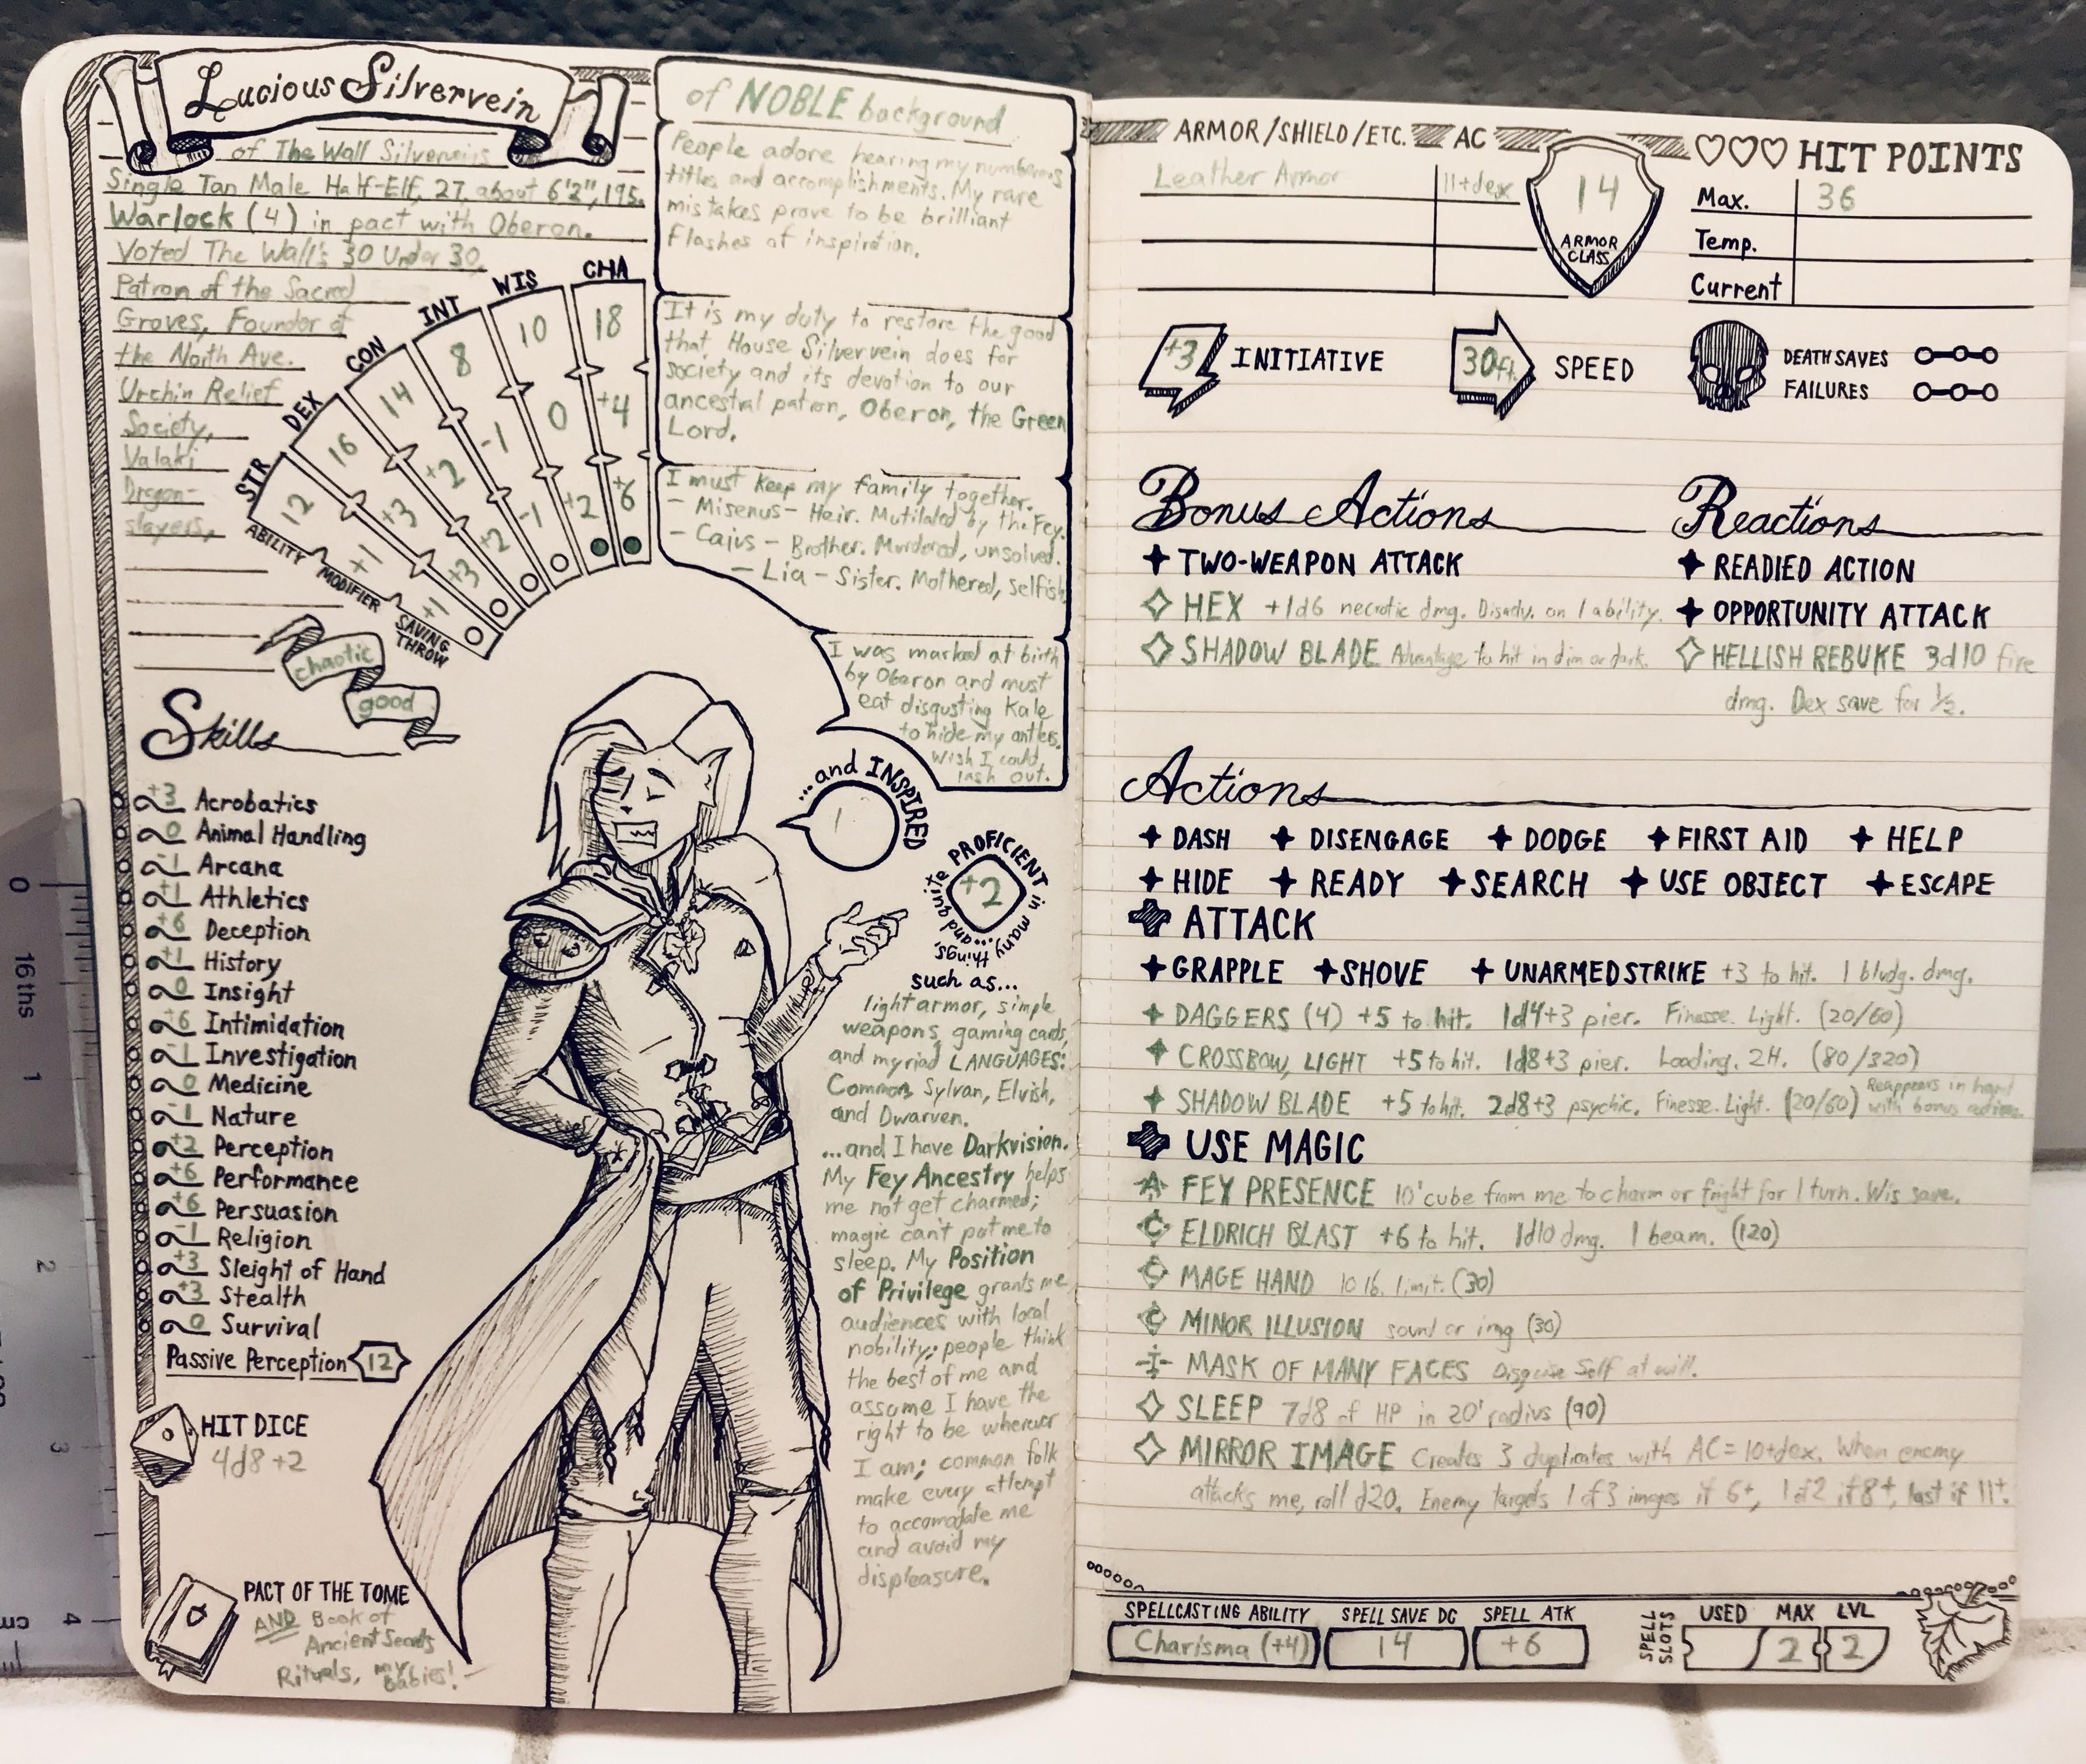 Lucious Silvervein
of The Wall Silverveins
Single Tan Male Half-Elf, 27, about 6'2", 195.
Warlock (4) in pact with Oberon.
Voted The Wall's 30 Under 30,
Patron of the Sacred
Groves, Founder of
the North Ave.
Urchin Relief
Society,
Valaki
Dragon-
slayers,
STR DEX CON INT WIS CHA
12 16 14 8 10 18
+1 +3 +2 -1 0 +4
+1 +3 +2 -1 +2 +6
ABILITY
MODIFIER
SAVING
THROW
chaotic
good
of NOBLE background
People adore hearing my numerous
titles and accomplishments. My rare
mistakes prove to be brilliant
flashes of inspiration.
It is my duty to restore the good
that House Silvervein does for
society and its devotion to our
ancestral patron, Oberon, the Green
Lord.
I must keep my family together.
- Misenus - Heir. Mutilated by the Fey.
- Caius - Brother. Murdered, unsolved.
- Lia - Sister. Mothered, selfish.
I was marked at birth
by Oberon and must
eat disgusting kale
to hide my antlers.
Wish I could
lash out.
...and INSPIRED
1
PROFICIENT in many things, ...and quite
+2
such as...
light armor, simple
weapons, gaming cards,
and myriad LANGUAGES:
Common, Sylvan, Elvish,
and Dwarven.
...and I have Darkvision.
My Fey Ancestry helps
me not get charmed;
magic can't put me to
sleep. My Position
of Privilege grants me
audiences with local
nobility; people think
the best of me and
assume I have the
right to be wherever
I am; common folk
make every attempt
to accomodate me
and avoid my
displeasure.
Skills
+3 Acrobatics
0 Animal Handling
-1 Arcana
+1 Athletics
+6 Deception
+1 History
0 Insight
+6 Intimidation
-1 Investigation
0 Medicine
-1 Nature
+2 Perception
+6 Performance
+6 Persuasion
-1 Religion
+3 Sleight of Hand
+3 Stealth
0 Survival
Passive Perception 12
HIT DICE
4d8+2
PACT OF THE TOME
AND Book of
Ancient Secrets
Rituals, my
babies!
ARMOR/SHIELD/ETC. AC
Leather Armor 11+dex
14
ARMOR
CLASS
HIT POINTS
Max. 36
Temp.
Current
+3 INITIATIVE
30ft. SPEED
DEATH SAVES
FAILURES
Bonus Actions
TWO-WEAPON ATTACK
HEX +1d6 necrotic dmg. Disadv. on 1 ability.
SHADOW BLADE Advantage to hit in dim or dark.
Reactions
READIED ACTION
OPPORTUNITY ATTACK
HELLISH REBUKE 3d10 fire
dmg. Dex save for ½.
Actions
DASH DISENGAGE DODGE FIRST AID HELP
HIDE READY SEARCH USE OBJECT ESCAPE
ATTACK
GRAPPLE SHOVE UNARMED STRIKE +3 to hit. 1 bludg. dmg.
DAGGERS (4) +5 to hit. 1d4+3 pier. Finesse. Light. (20/60)
CROSSBOW, LIGHT +5 to hit. 1d8+3 pier. Loading. 2H. (80/320)
SHADOW BLADE +5 to hit. 2d8+3 psychic. Finesse. Light. (20/60) Reappears in hand
with bonus action.
USE MAGIC
A FEY PRESENCE 10' cube from me to charm or fright for 1 turn. Wis save.
C ELDRICH BLAST +6 to hit. 1d10 dmg. 1 beam. (120)
C MAGE HAND 10 lb. limit. (30)
C MINOR ILLUSION sound or img (30)
I MASK OF MANY FACES Disguise Self at will.
SLEEP 7d8 of HP in 20' radius (90)
MIRROR IMAGE Creates 3 duplicates with AC=10+dex. When enemy
attacks me, roll d20. Enemy targets 1 of 3 images if 6+, 1 of 2 if 8+, last if 11+.
SPELLCASTING ABILITY SPELL SAVE DC SPELL ATK
Charisma (+4) 14 +6
SPELL
SLOTS
USED MAX LVL
2 2
0
16ths
1
2
3
4
cm